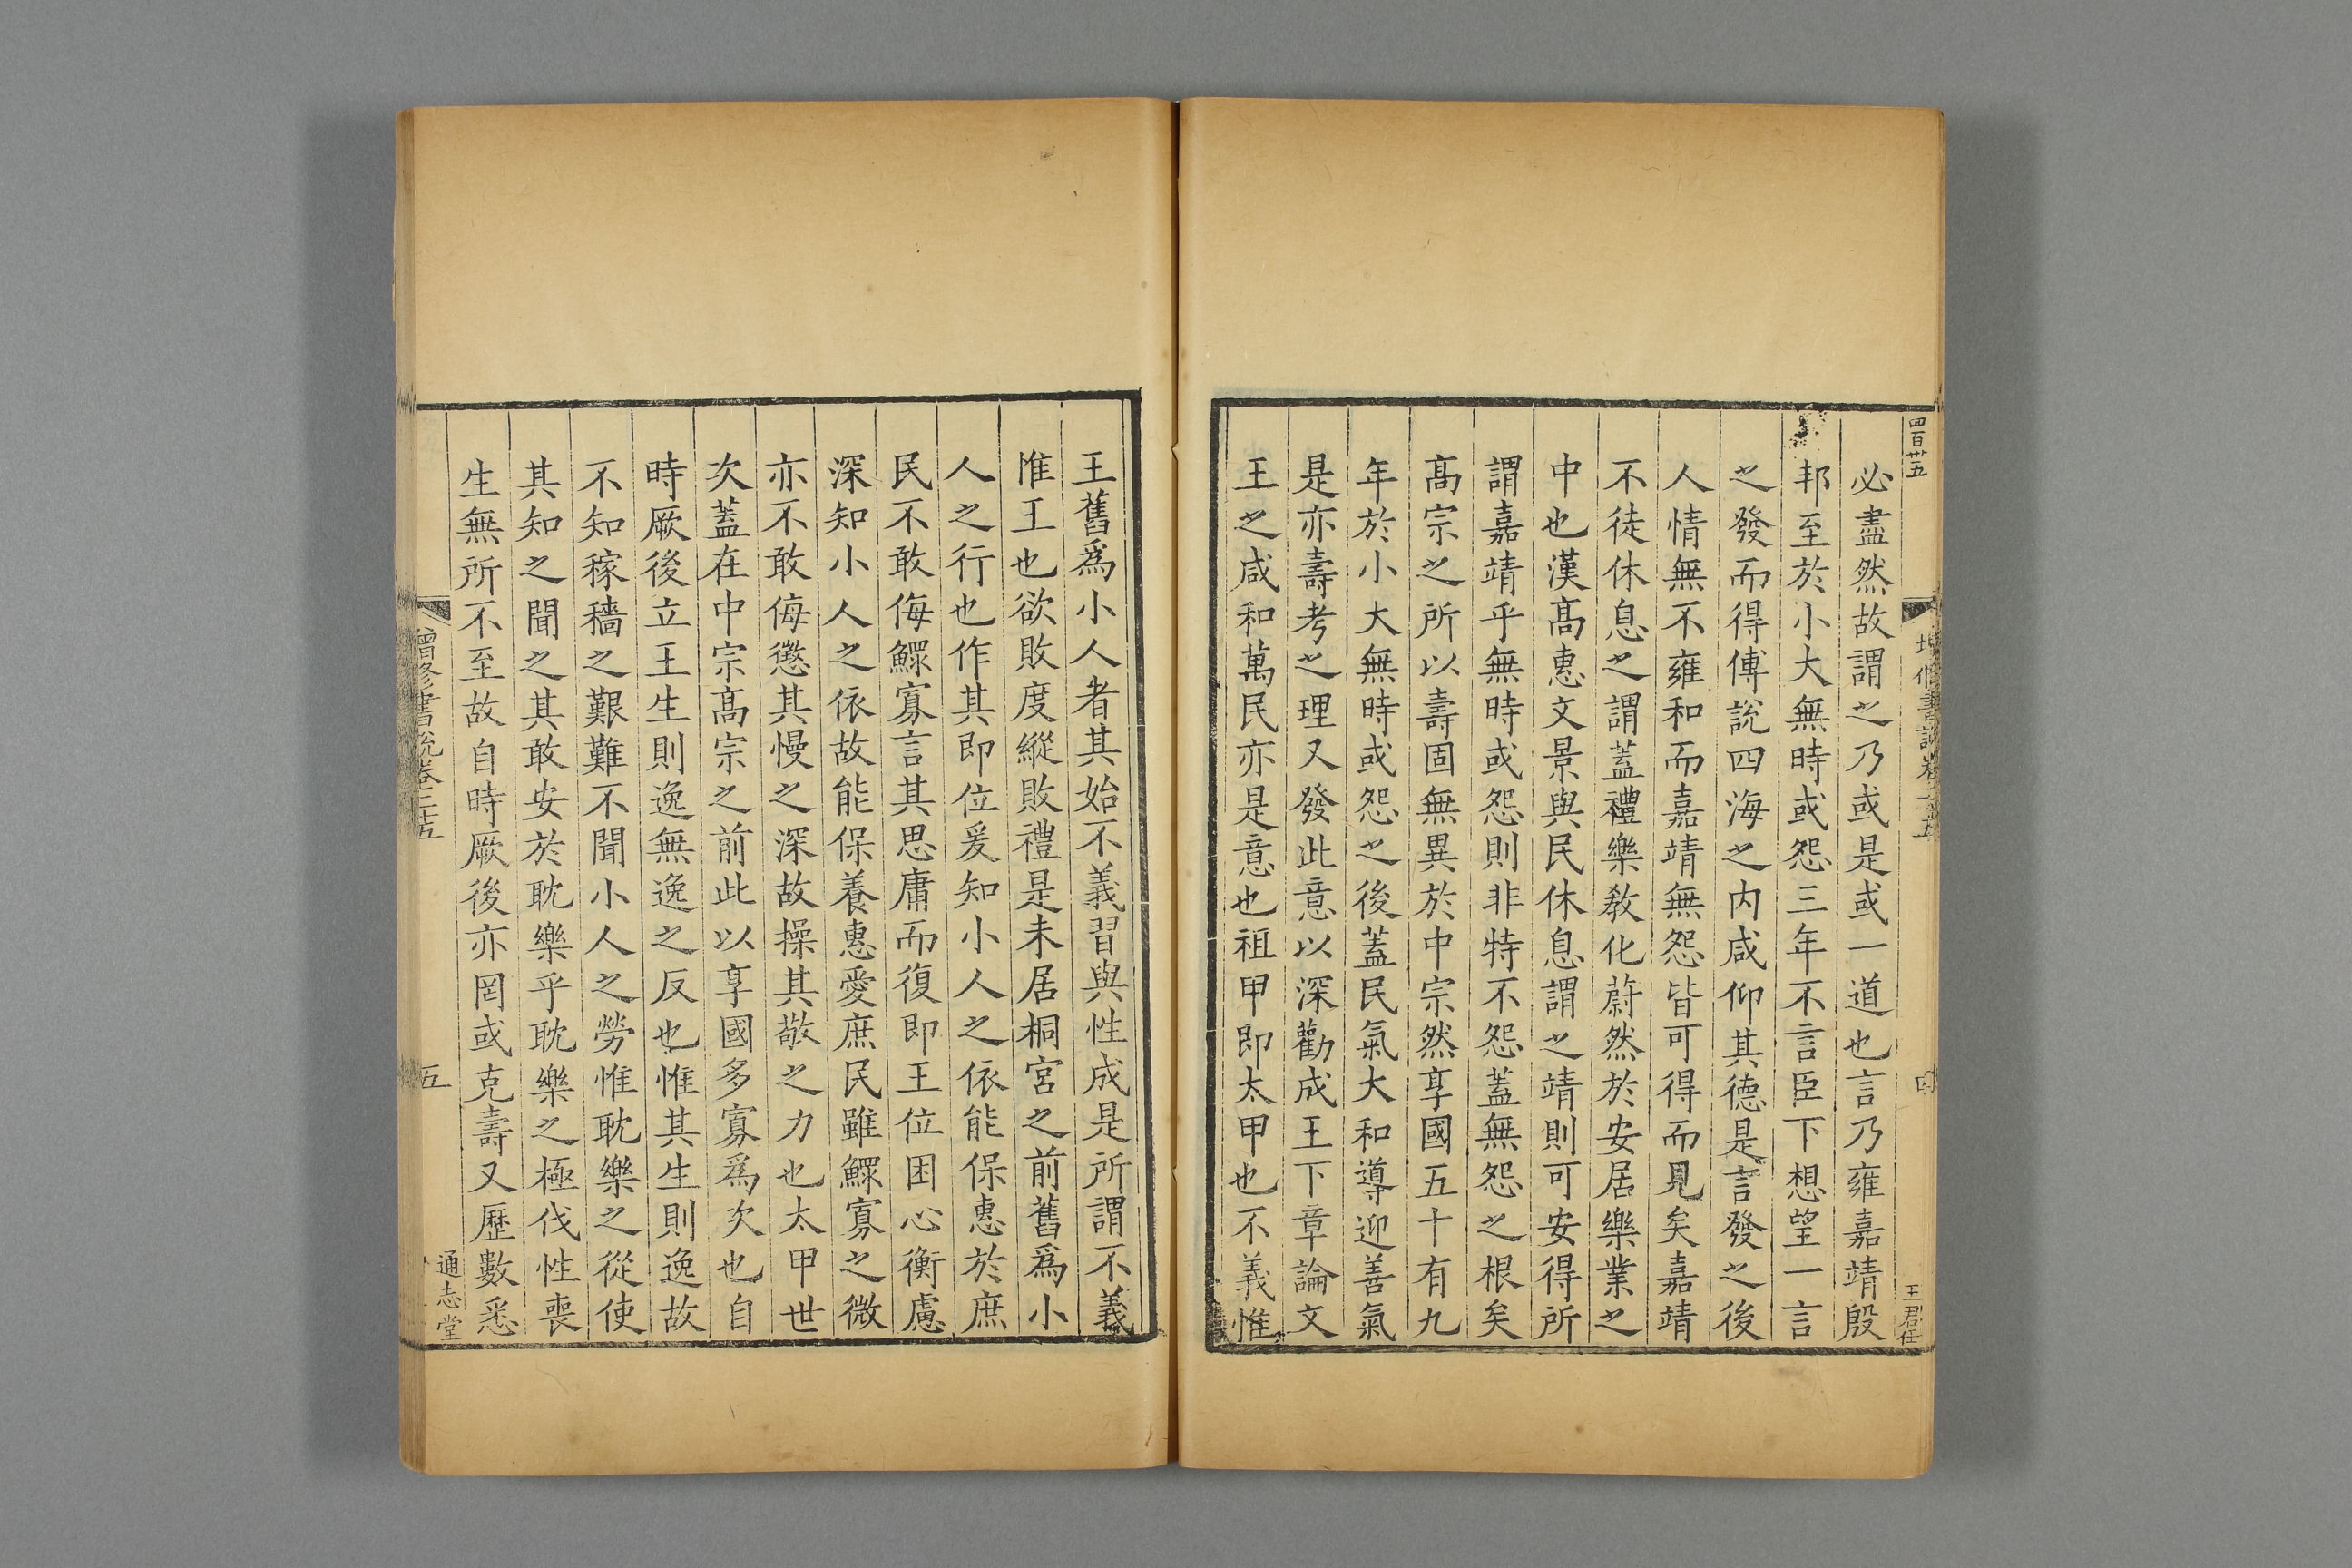 四百卅五
王君任
必盡然故謂之乃或是或一道也言乃雍嘉靖殷
邦至於小大無時或怨三年不言臣下想望一言
之發而得傅說四海之內咸仰其德是言發之後
人情無不雍和而嘉靖無怨皆可得而見矣嘉靖
不徒休息之謂蓋禮樂敎化蔚然於安居樂業之
中也漢髙惠文景與民休息謂之靖則可安得所
謂嘉靖乎無時或怨則非特不怨蓋無怨之根矣
髙宗之所以壽固無異於中宗然享國五十有九
年於小大無時或怨之後蓋民氣大和導迎善氣
是亦壽考之理又發此意以深勸成王下章論文
王之咸和萬民亦是意也祖甲即太甲也不義惟
王舊爲小人者其始不義習與性成是所謂不義
惟王也欲敗度縱敗禮是未居桐宮之前舊爲小
人之行也作其即位爰知小人之依能保惠於庶
民不敢侮鰥寡言其思庸而復即王位困心衡慮
深知小人之依故能保養惠愛庶民雖鰥寡之微
亦不敢侮懲其慢之深故操其敬之力也太甲世
次蓋在中宗髙宗之前此以享國多寡爲次也自
時厥後立王生則逸無逸之反也惟其生則逸故
不知稼穡之艱難不聞小人之勞惟耽樂之從使
其知之聞之其敢安於耽樂乎耽樂之極伐性喪
生無所不至故自時厥後亦罔或克壽又歷數悉
增修書說卷二十五
五
通志堂